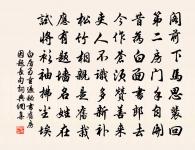 閣前下馬思裴回
第二房門手自開昔
為白面書郎去
今作蒼須贊善來
吏人不識多新補
松竹相親是舊栽
應有題牆名姓在
試將衫袖拂塵埃
白居易重過秘書舊房
因題長句詞典網集